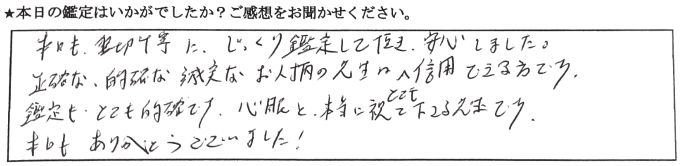 ★本日の鑑定はいかがでしたか？ご感想をお聞かせください。
本日も、親切丁寧に、じっくり鑑定して頂き、安心しました。
正確な、的確な 誠実な お人柄の先生は 信用できる方です。
鑑定も、とても的確です。心眼と、本当に視て下さる先生です。
本日も ありがとうございました！